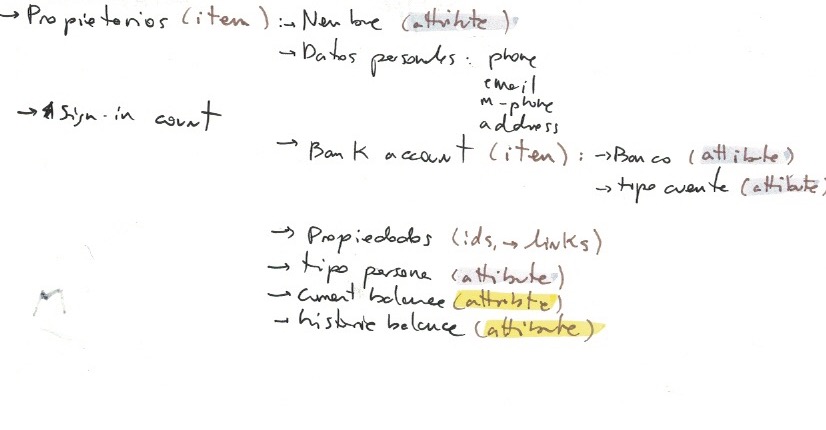 → Propietarios (item) :→ Nombre (attribute)
→ Datos personales : phone
email
m-phone
address
→ Sign-in count
→ Bank account (item) : → Banco (attibute)
→ tipo cuenta (attibute)
→ Propiedades (ids, → links)
→ tipo persona (attibute)
→ current balance (attribte)
→ historic balance (attibute)